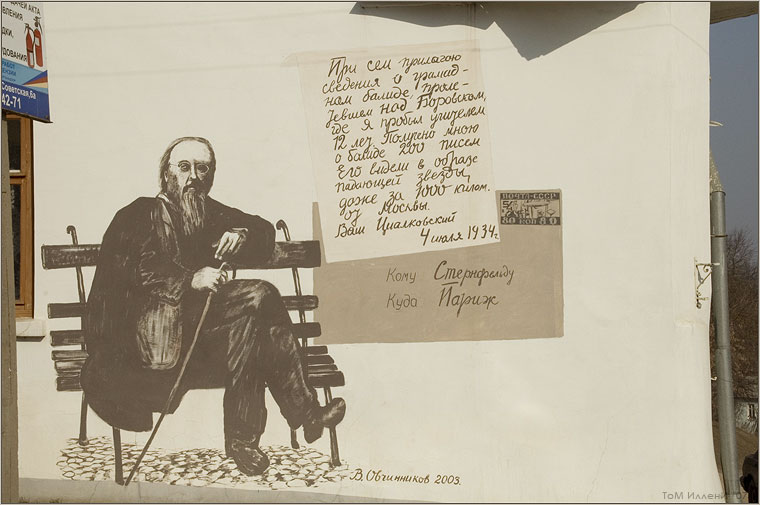 ДАЧЕЙ АКТА
ВЛЕНИЯ
ДКИ,
УДОВАНИЯ
РАБОТ
Советская,6а
42-71
При сем прилагаю
сведения о громад-
ном болиде, проле-
тевшем над Боровском,
где я пробыл учителем
12 лет. Получено мною
о болиде 200 писем
Его видели в образе
падающей звезды
даже за 1000 килом.
от Москвы.
Ваш Циалковский
4 июля 1934 г.
ПОЧТА-СССР
80 КОП 80
Кому Стернфельду
Куда Париж
В. Овчинников 2003.